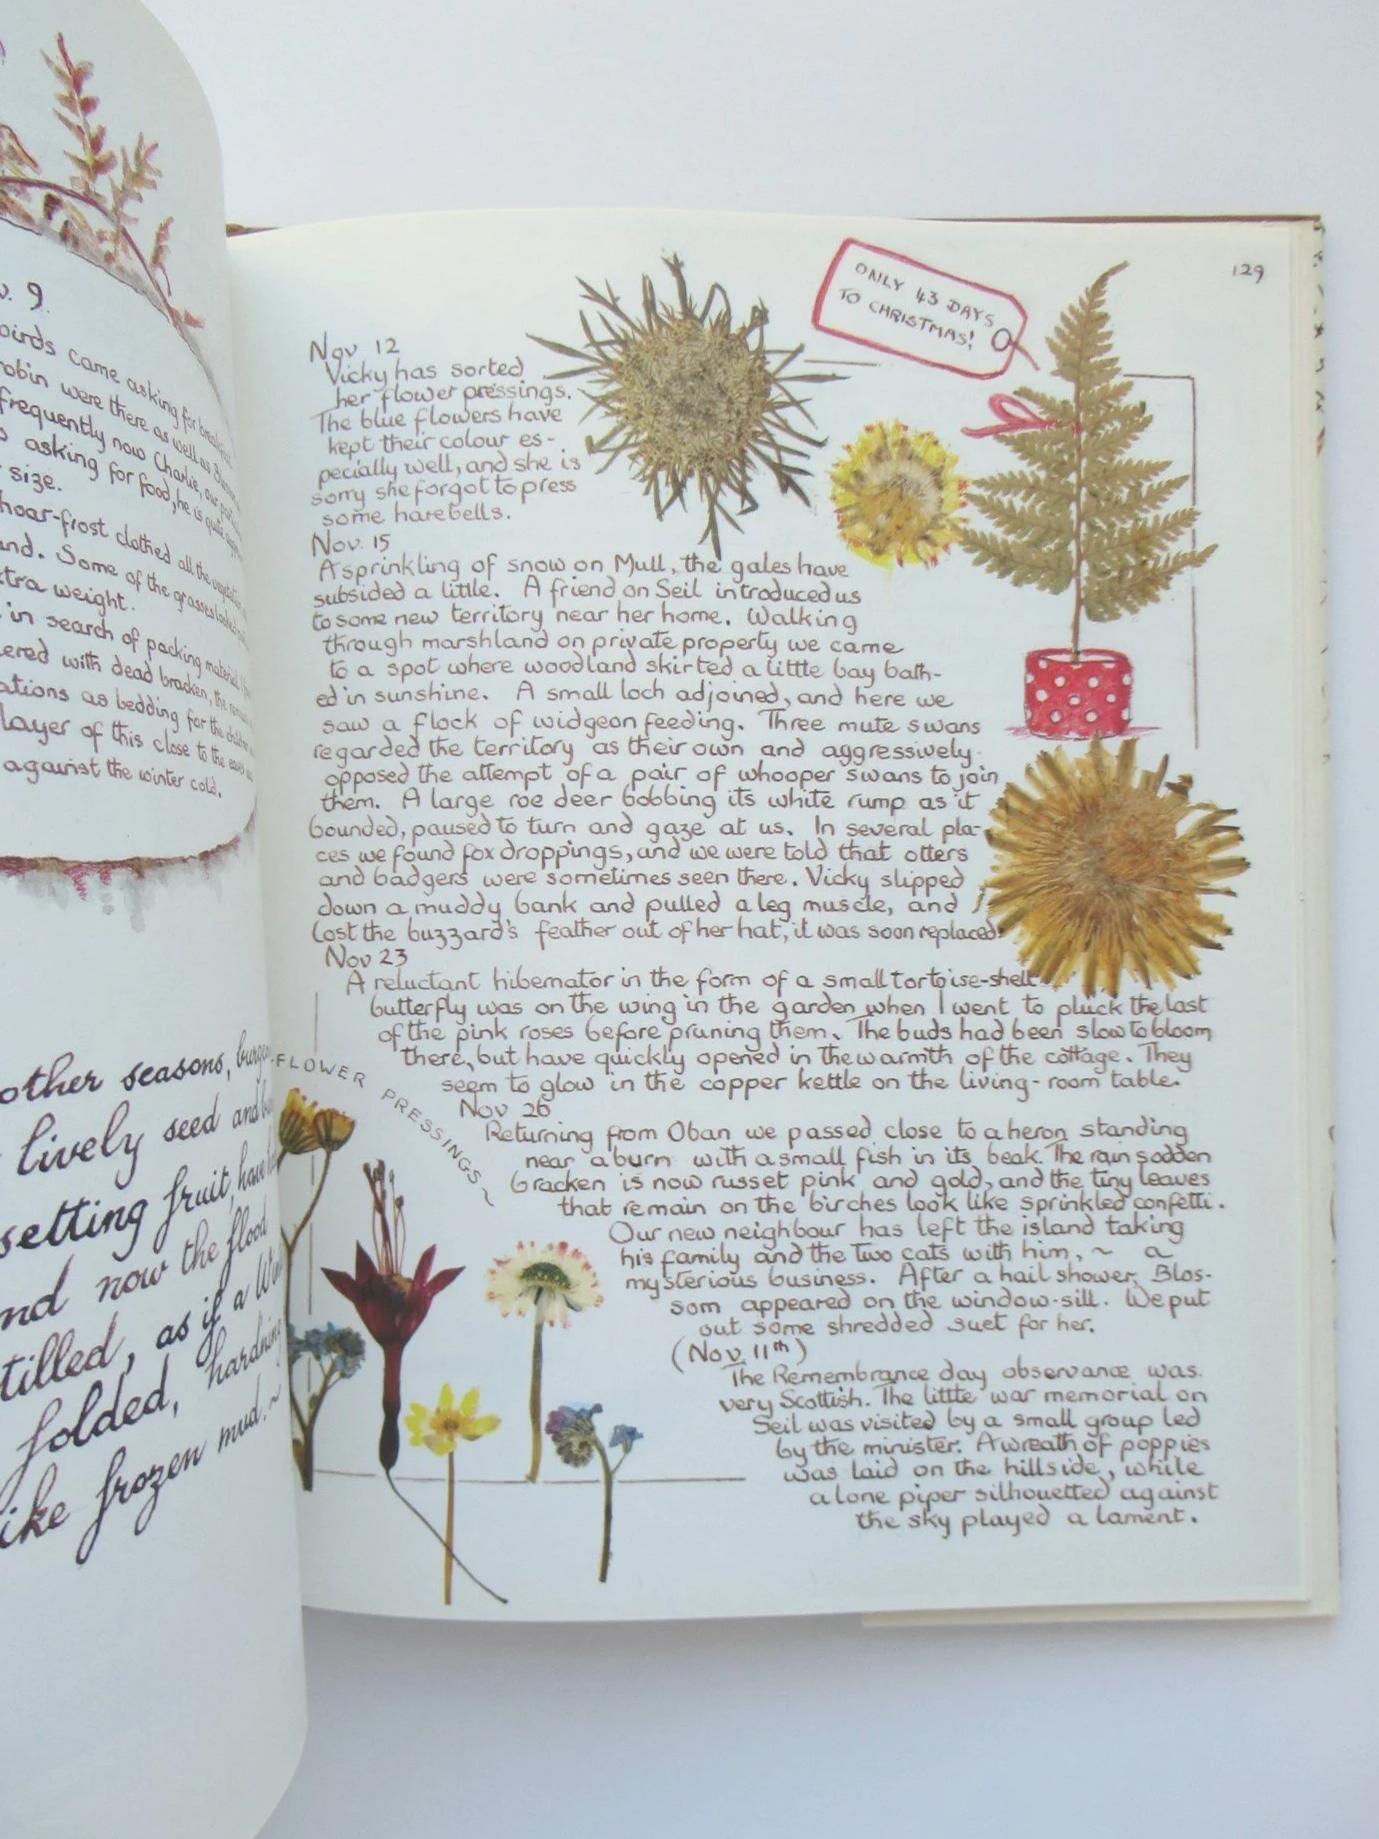 9.
birds came asking for
robin were there as well as
frequently now Charlie, our
asking for food, he is quite
size.
hoar-frost clothed all the
and. Some of the grasses looked
weight.
in search of packing material
with dead bracken, the
as bedding for the
layer of this close to the
against the winter cold.
other seasons,
lively seed and
setting fruit, have
now the flood
as if a
folded, hardning
frozen mud. ~
129
ONLY 43 DAYS
TO CHRISTMAS!
Nov 12
Vicky has sorted
her flower pressings.
The blue flowers have
kept their colour es-
pecially well, and she is
sorry she forgot to press
some harebells.
Nov. 15
A sprinkling of snow on Mull, the gales have
subsided a little. A friend on Seil introduced us
to some new territory near her home. Walking
through marshland on private property we came
to a spot where woodland skirted a little bay bath-
ed in sunshine. A small loch adjoined, and here we
saw a flock of widgeon feeding. Three mute swans
regarded the territory as their own and aggressively
opposed the attempt of a pair of whooper swans to join
them. A large roe deer bobbing its white rump as it
bounded, paused to turn and gaze at us. In several pla-
ces we found fox droppings, and we were told that otters
and badgers were sometimes seen there. Vicky slipped
down a muddy bank and pulled a leg muscle, and
lost the buzzard's feather out of her hat, it was soon replaced.
Nov 23
A reluctant hibernator in the form of a small tortoise-shell
butterfly was on the wing in the garden when I went to pluck the last
of the pink roses before pruning them. The buds had been slow to bloom
there, but have quickly opened in the warmth of the cottage. They
seem to glow in the copper kettle on the living-room table.
FLOWER PRESSINGS ~
Nov 26
Returning from Oban we passed close to a heron standing
near a burn with a small fish in its beak. The rain sodden
bracken is now russet pink and gold, and the tiny leaves
that remain on the birches look like sprinkled confetti.
Our new neighbour has left the island taking
his family and the two cats with him, ~ a
mysterious business. After a hail shower, Blos-
som appeared on the window-sill. We put
out some shredded suet for her.
(Nov. 11th)
The Remembrance day observance was
very Scottish. The little war memorial on
Seil was visited by a small group led
by the minister. A wreath of poppies
was laid on the hillside, while
a lone piper silhouetted against
the sky played a lament.